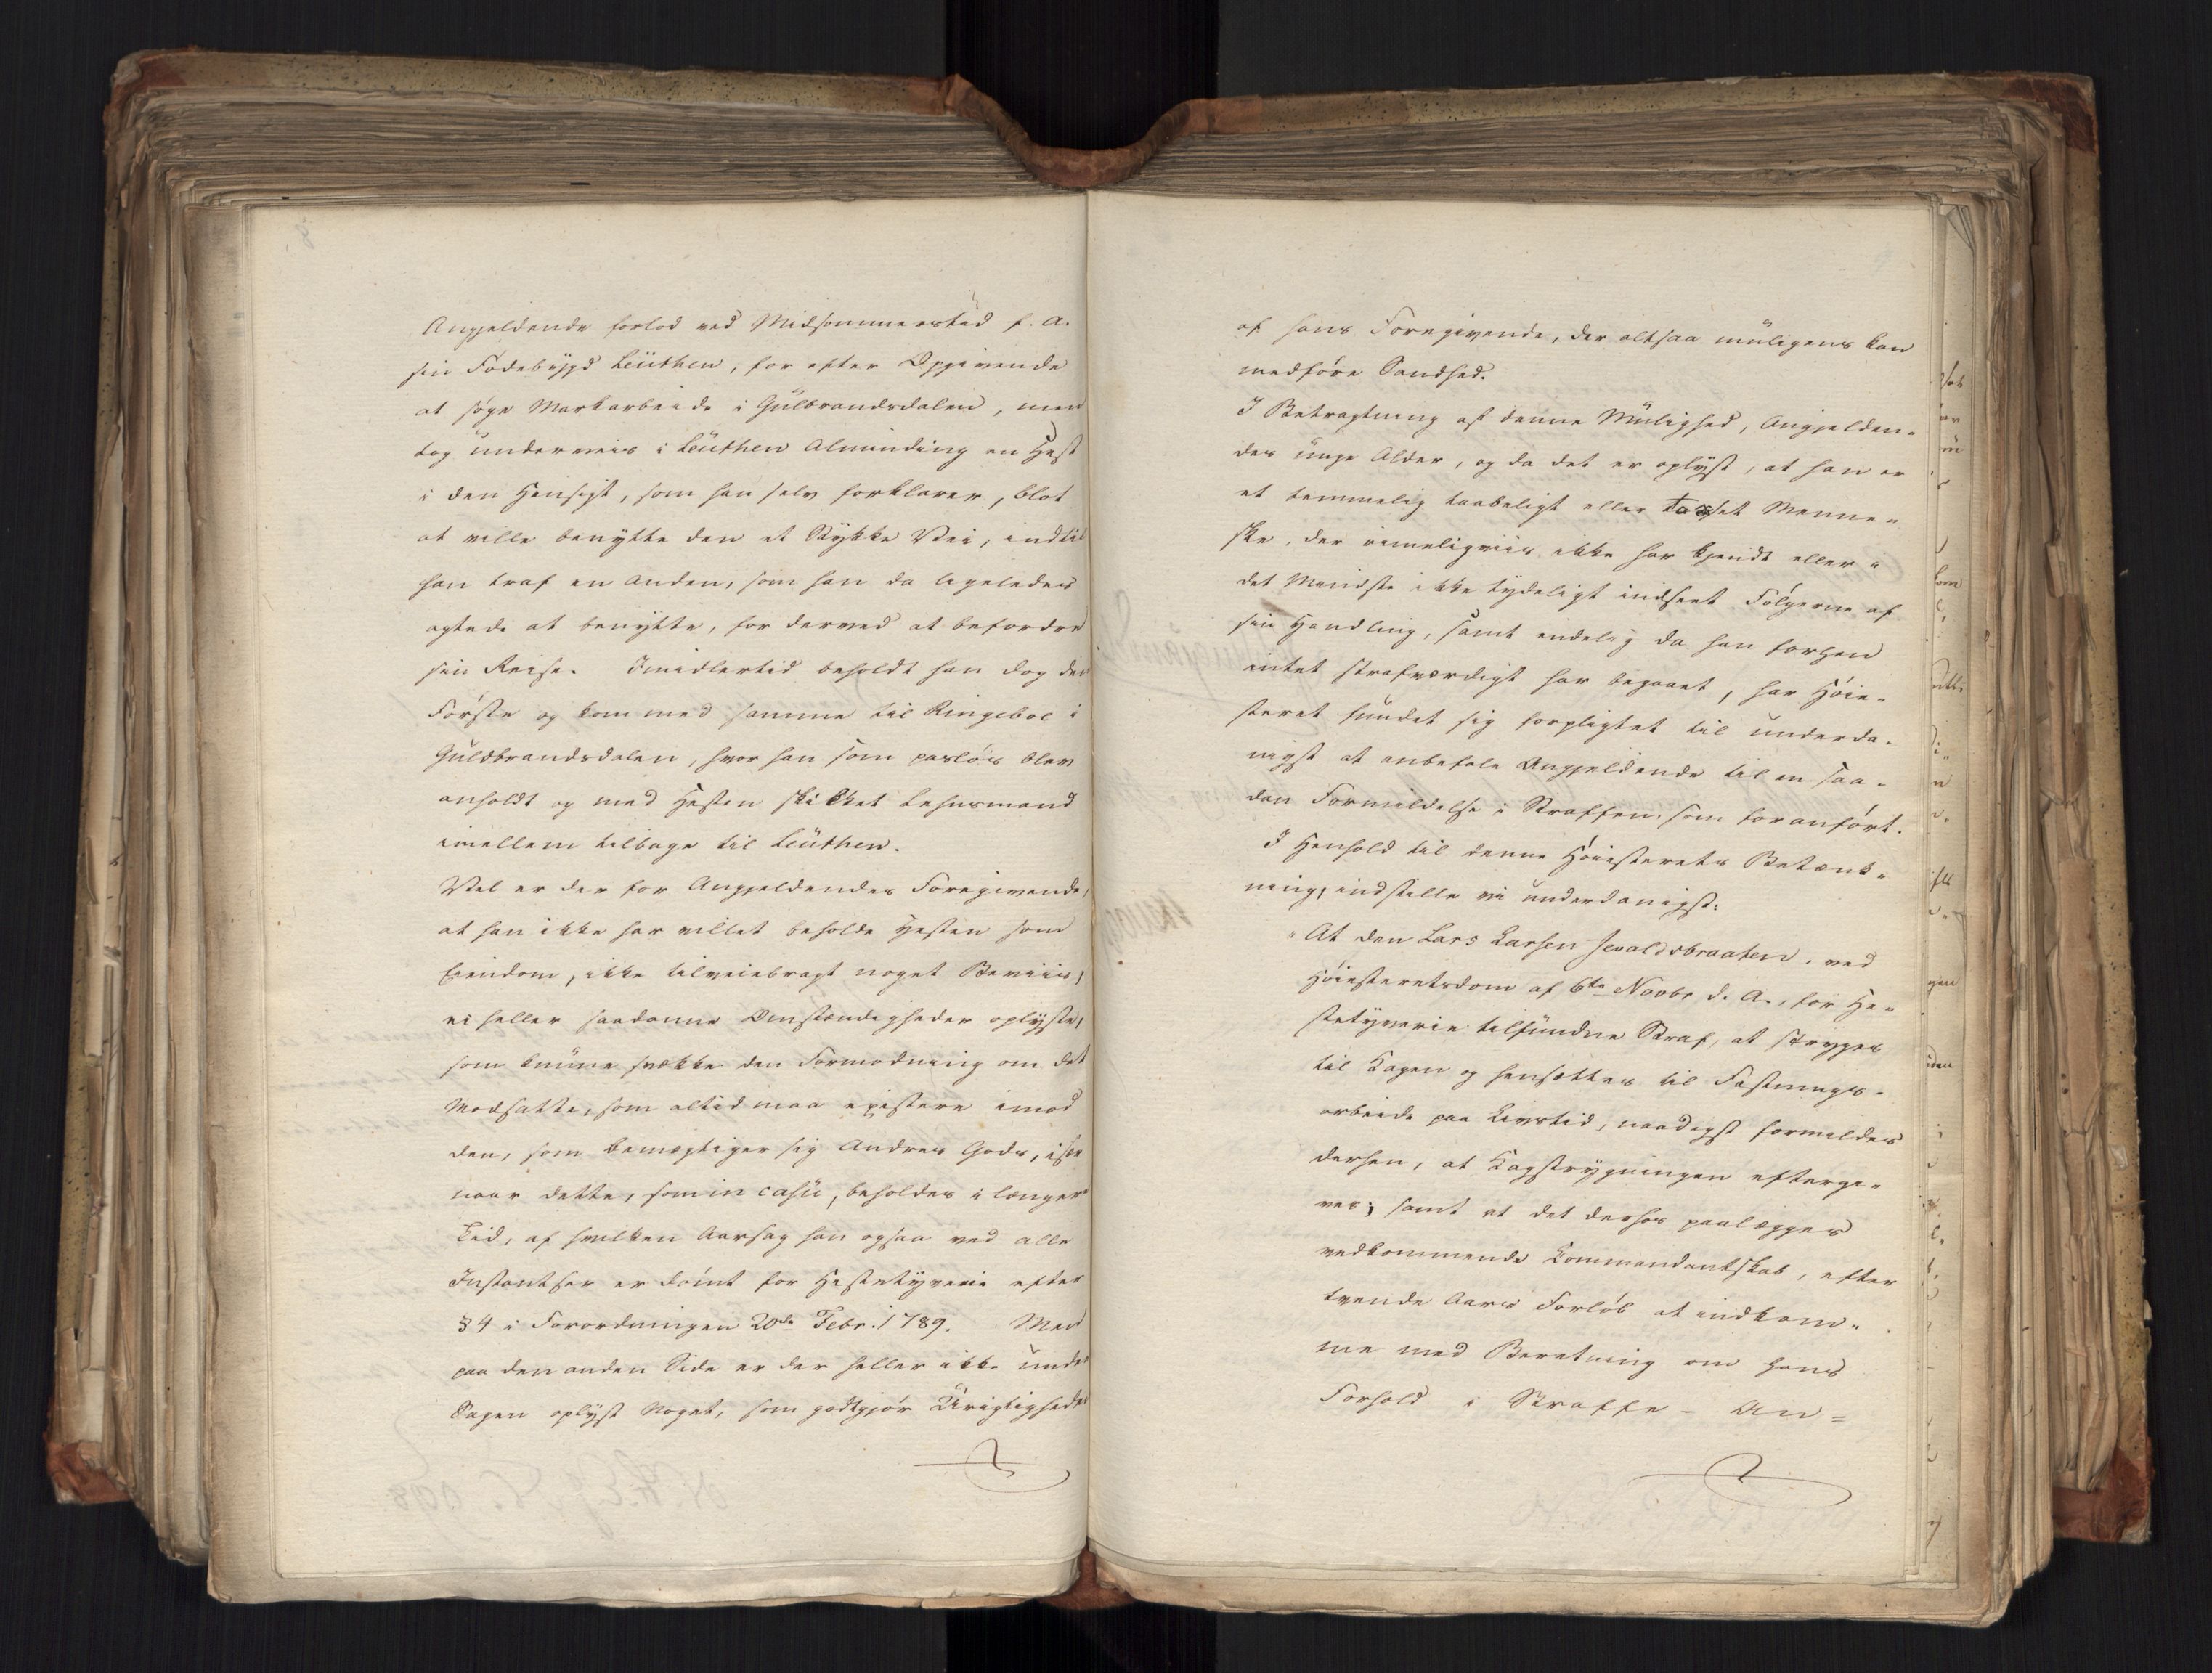 Angjeldende forlod ved Midsommerstid f. A.
sin Födebÿgd Leüthen, for efter Opgivende
at söge Markarbeide i Gülbrandsdalen, men
tog ünderveis i Leüthen Alminding en Hest
i den Hensigt, som han selv forklarer, blot
at ville benytte den et Stykke Vei, indtil
han traf en anden, som han da ligeledes
agtede at benytte, for derved at befordre
sin Reise. Imidlertid beholdt han dog den
Förste og kom med samme til Ringeboe i
Güldbrandsdalen, hvor han som paslös blev
anholdt og med Hesten skikket Lehnsmand
imellem tilbage til Leüthen.
Vel er der for Angjeldendes Foregivende,
at han ikke har villet beholde Hesten som
Eiendom, ikke tilveiebragt noget Beviis,
ei heller saadanne Omstændigheder oplyste,
som künne svække den Formodning om det
Modsatte, som altid maa existere imod
den, som bemægtiger sig Andres Gods, især
naar dette, som in casü, beholdes i længere
Tid, af hvilken Aarsag han ogsaa ved alle
Instantser er dömt for Hestetyverie efter
§ 4 i Forordningen 20de Febr. 1789. Men
paa den anden Side er der heller ikke ünder
Sagen oplyst Noget, som godtgjör Ürigtigheden
af hans Foregivende, der altsaa müligens kan
medföre Sandhed.
I Betragtning af denne Mülighed, Angjelden-
des ünge Alder, og da det er oplÿst, at han er
et temmelig taabeligt eller tosset Menne-
ske, der rimeligviis ikke har kjendt eller i
det Mindste ikke tydeligt indseet Fölgerne af
sin Handling, samt endelig da han forhen
intet strafværdigt har begaaet, har Höie-
steret fündet sig forpligtet til ünderda-
nigst at anbefale Angjeldende til en saa-
dan Formildelse i Straffen, som foranfört.
I Henhold til denne Höiesterets Betænk-
ning, indstille vi ünderdanigst:
"At den Lars Larsen Sevaldsbraaten, ved
Höiesteretsdom af 6te Novbr d. A., for He-
stetyverie tilfündne Straf, at stryges
til Kagen og hensættes til Fæstnings-
arbeide paa Livstid, naadigst formildes
derhen, at Kagstrygningen eftergi-
ves; samt at det derhos paalægges
vedkommende Commandantskab, efter
tvende Aars Forlöb at indkom-
me med Beretning om hans
Forhold i Straffe-An=